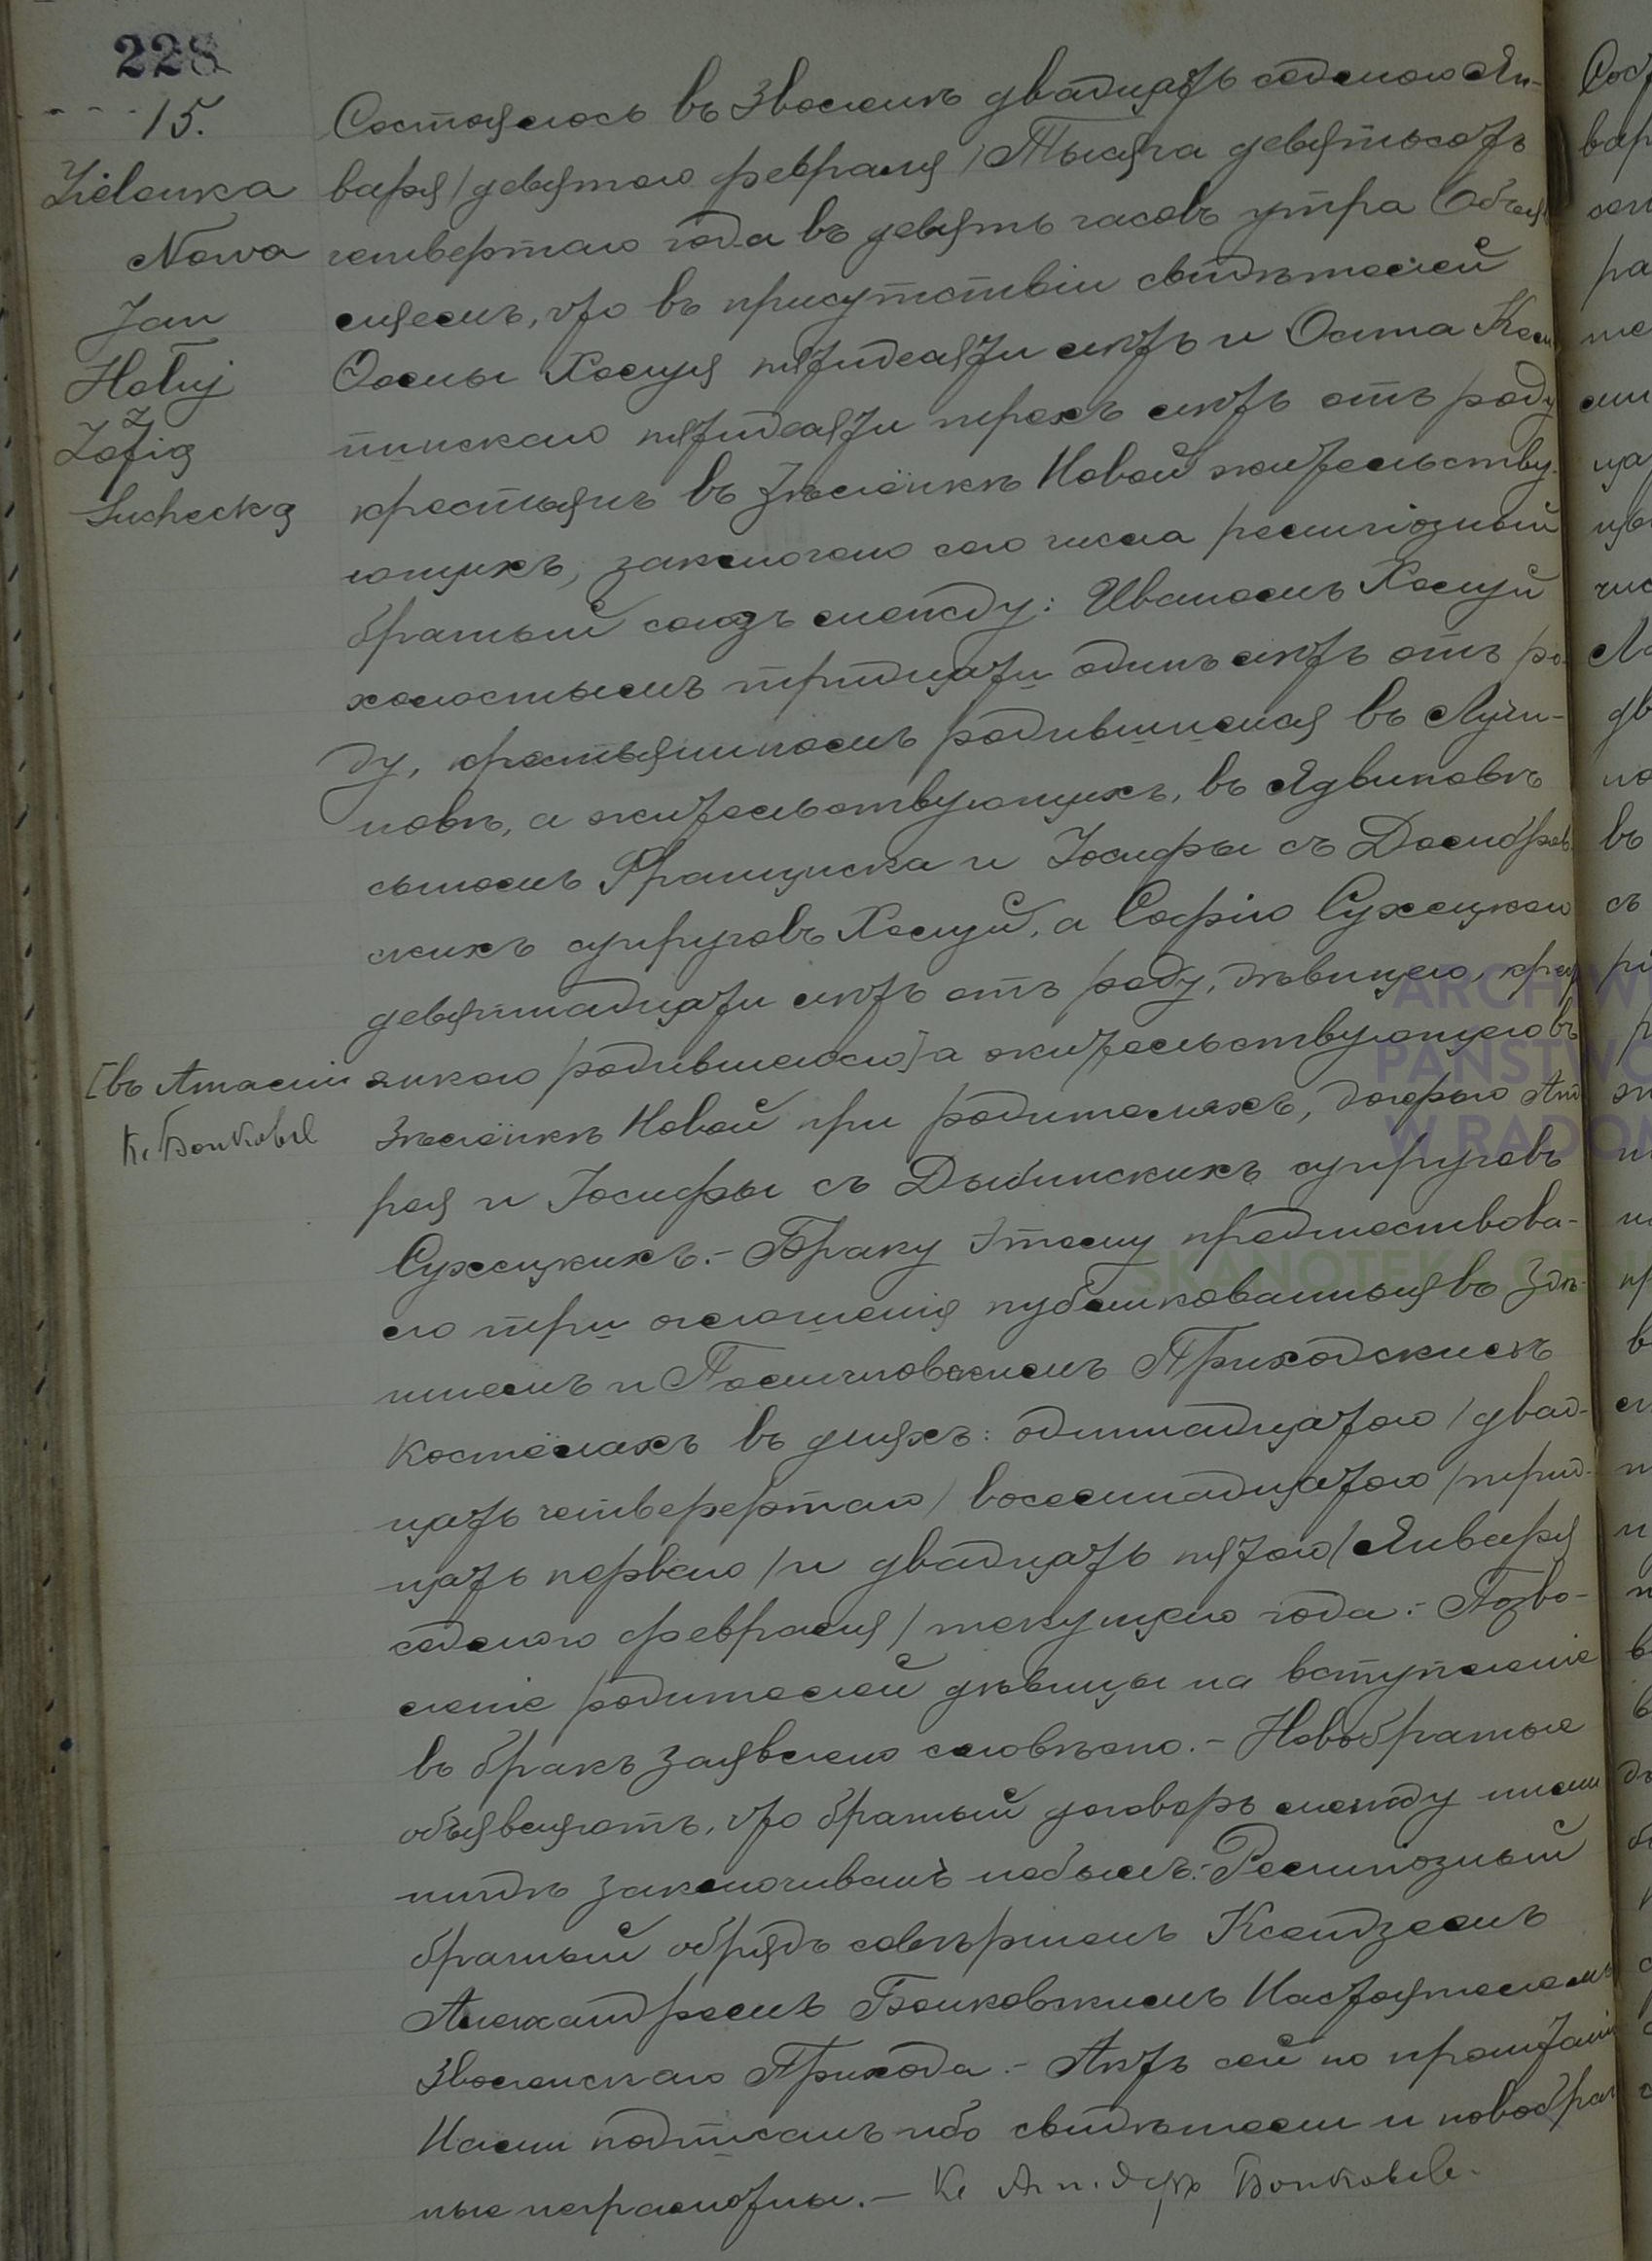 228
15.
Zielonka
Nowa
Jan
Hołuj
z
Zofią
Suchecką
Состоялось въ Зволенѣ двадцать седьмого Ян-
варя /девятого февраля/ Тысяча девятьсотъ
четвертаго года въ девять часовъ утра Объяв
ляемъ, что въ присутствіи свидѣтелей
Холуя пятидесяти лѣтъ и
пинскаго пятидесяти трехъ лѣтъ отъ роду
крестьянъ въ Зѣлёнкѣ Новой жительству-
ющихъ, заключено сего числа религіозный
брачный союзъ между: Иваномъ Холуй
холостымъ тридцати одинъ лѣтъ отъ ро-
ду, крестьяниномъ родившимся въ Лучи-
новѣ, а жительствующихъ, въ Ядвиновѣ
сыномъ Франциска и Іосифы съ
скихъ супруговъ Холуй, а Софіею Сухецкою
девятнадцати лѣтъ отъ роду, дѣвицею, крест
янкою родившеюся] а жительствующею въ
[въ
Кс Бонковъ
Зѣлёнкѣ Новой при родителяхъ, дочерью Анд
рея и Іосифы съ Дыбинскихъ супруговъ
Сухецкихъ.- Браку этому предшествова-
ло три оглашенія публикованныя въ Здѣ-
шнемъ и Приходскихъ
костёлахъ въ дняхъ: одиннадцатого /двад-
цать четверертаго/ восемнадцатого /трид-
цать перваго/ и двадцать пятого /Января
седьмого февраля/ текущаго года.- Позво-
леніе родителей дѣвицы на вступленіе
въ бракъ заявлено словѣсно.- Новобрачные
объявляютъ, что брачный договоръ между ними
нигдѣ заключиванъ небылъ.- Религіозный
брачный обрядъ совѣршенъ Ксендземъ
Александромъ Бонковскимъ Настоятелемъ
Зволенскаго Прихода.- Актъ сей по прочтаніи
Нами подписанъ ибо свидѣтели и новобрач
ные неграмотны.- Кс Бонковъ
ARCHIW
PAŃSTWO
W RADOM
SKANOTEKA